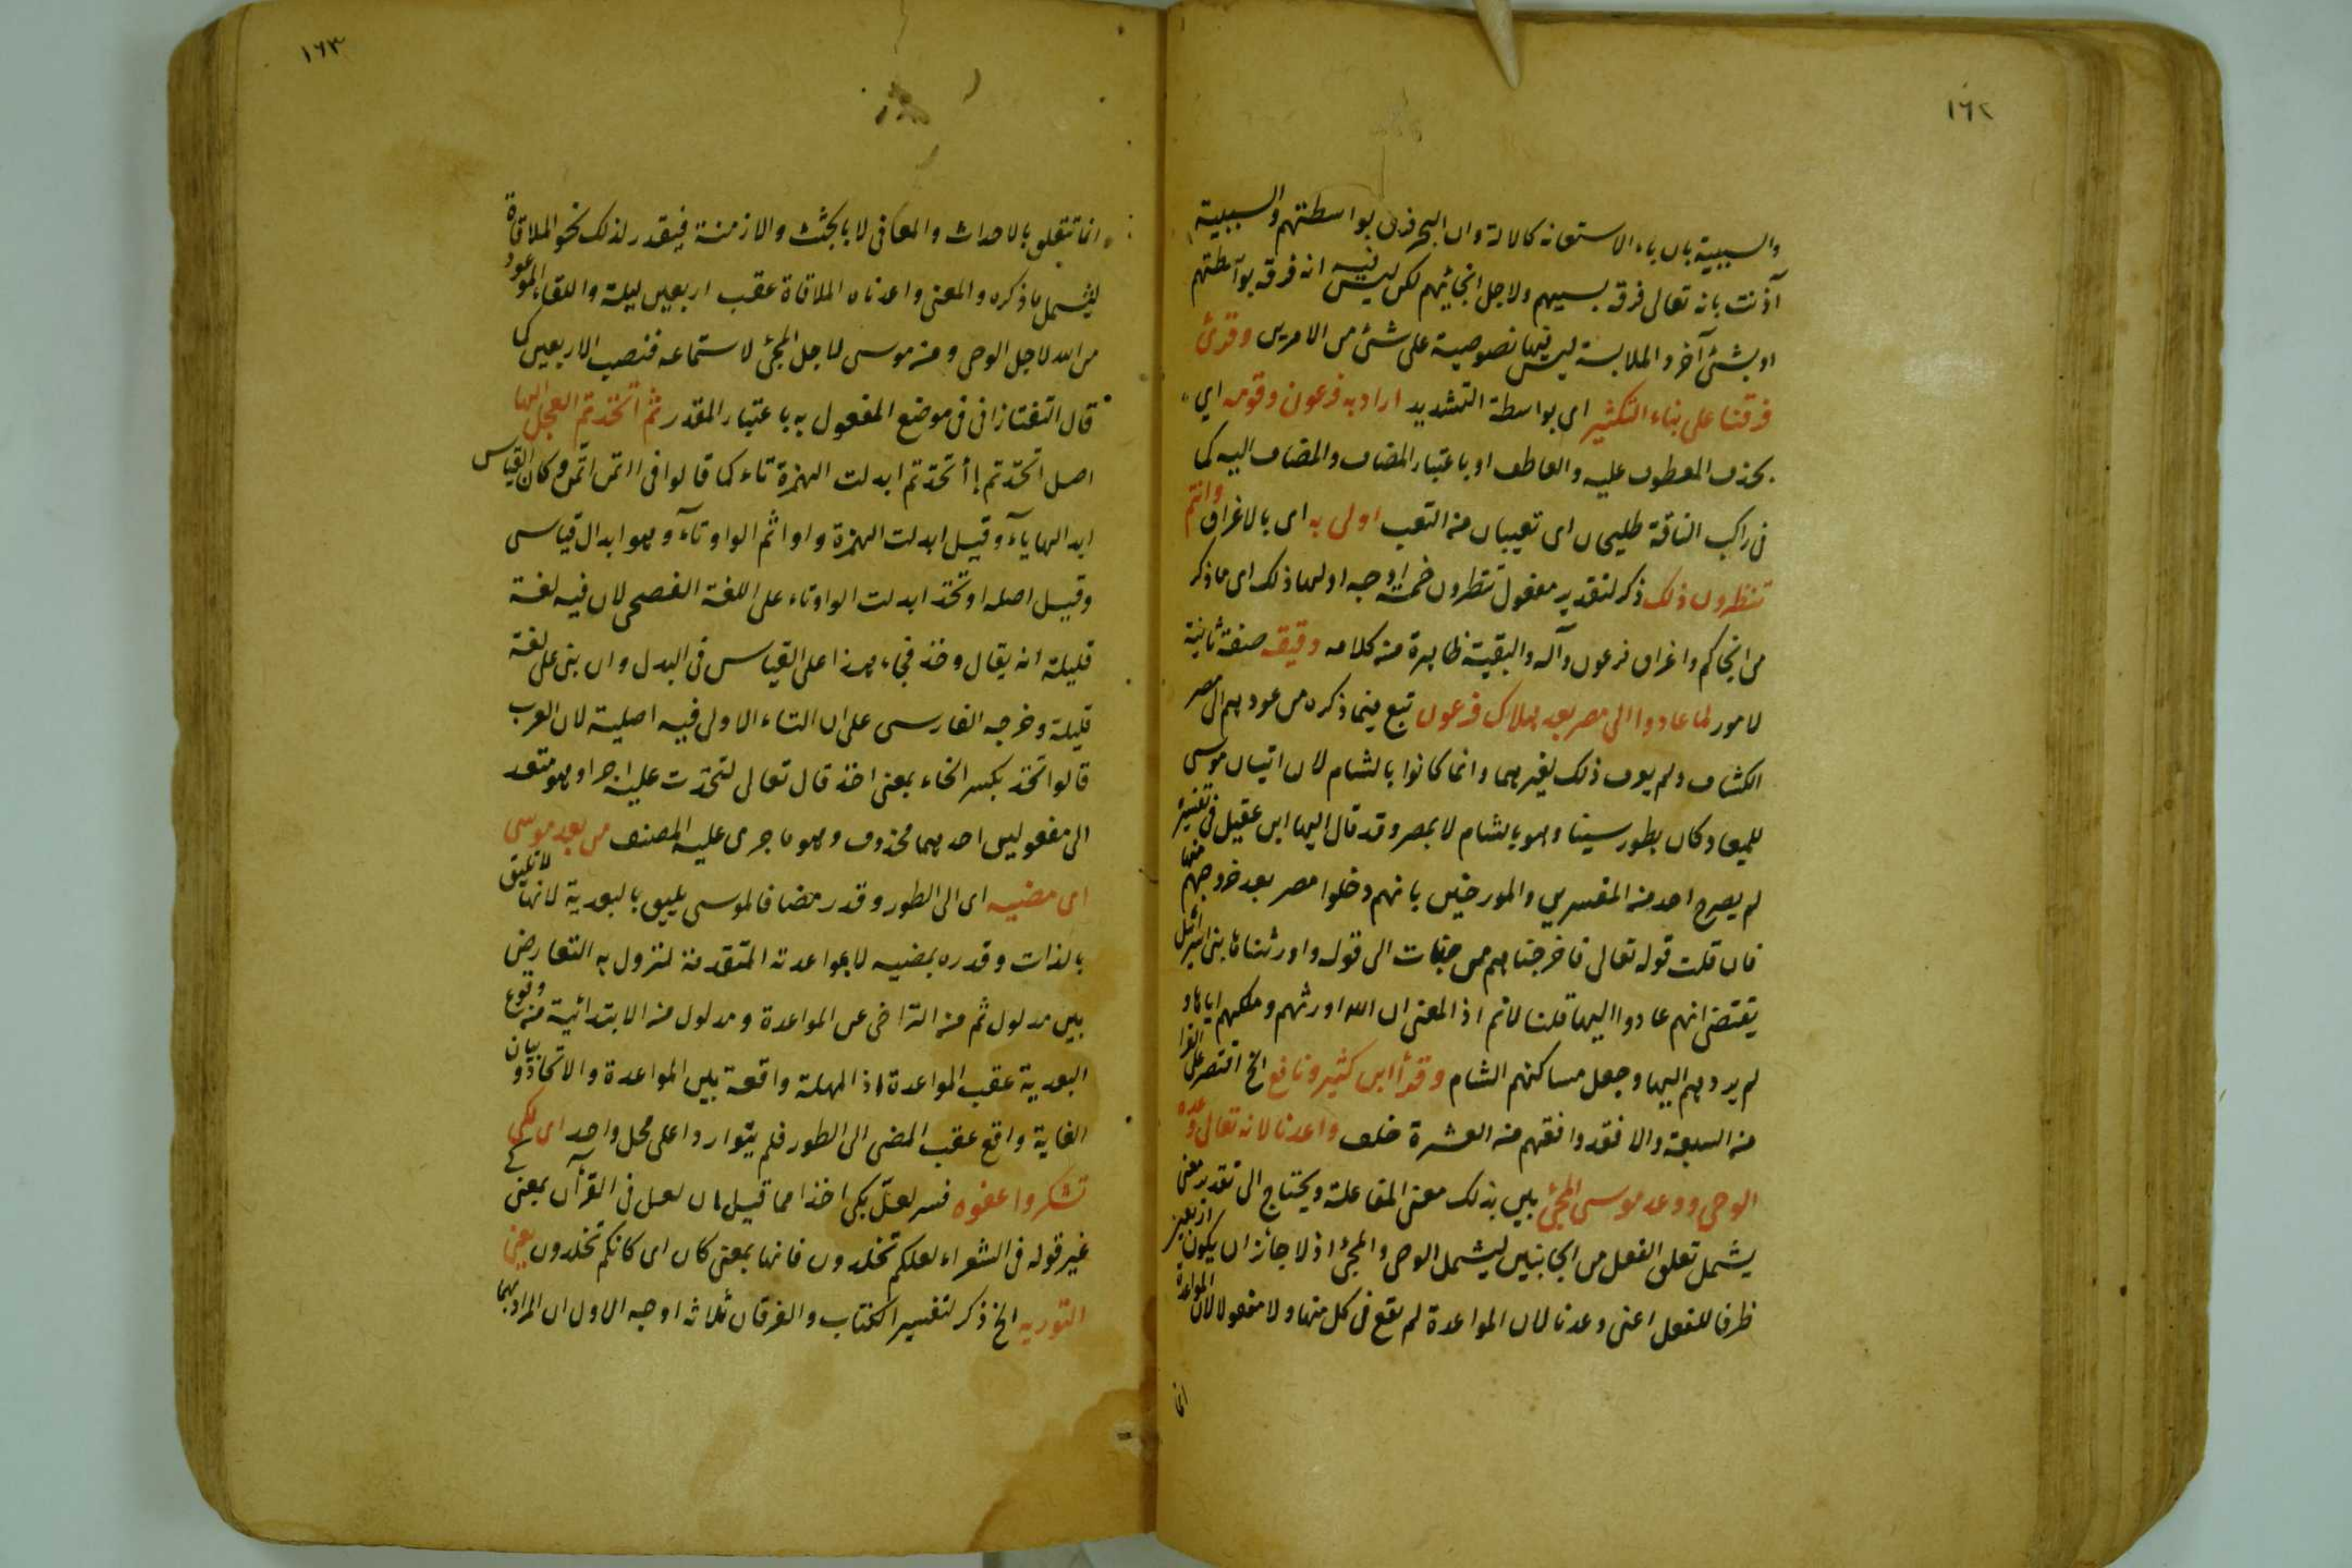 ١٦٢
والسببية بان باء الاستعانه كالالة وان البحر فرق بواسطتهم والسببية
آذنت بانه تعالى فرقه بسببهم ولاجل انجائهم لكن ليس فيه انه فرقه بواسطتهم
او بشئ آخر والملابسة ليس فيها نصوصية على شئ من الامرين وقرئ
فرقنا على بناء التكثير اى بواسطة التشديد اراد به فرعون وقومه اي
بحذف المعطوف عليه والعاطف او باعتبار المضاف والمضاف اليه كما
فى راكب الناقة طليحان اى تعيبان من التعب اولى به اى بالاغراق وانتم
تنظرون ذلك ذكر لتقدير مفعول تنظرون خمسة اوجه اولها ذلك اى ما ذكر
من انجاكم واغراق فرعون وآله والبقية ظاهرة من كلامه دقيقه صفة ثانية
لامور لما عادوا الى مصر بعد هلاك فرعون تبع فيما ذكره من عودهم الى مصر
الكشاف ولم يعرف ذلك لغيرهما وانما كانوا بالشام لان اتيان موسى
للميعاد كان بطور سينا وهو بالشام لا بمصر وقد قال ابن عقيل فى تفسيره
لم يصرح احد من المفسرين والمورخين بانهم دخلوا مصر بعد خروجهم منها
فان قلت قوله تعالى فاخرجناهم من جنات الى قوله واورثناها بنى اسرائيل
يقتضى انهم عادوا اليها قلنا لا ثم اذ المعنى ان الله اورثهم وملكهم اياها و
لم يردهم اليها وجعل مساكنهم الشام وقرأ ابن كثير ونافع الخ اقتصر على القرا
من السبعة والا فقد وافقهم من العشرة خلف واعدنا لانه تعالى وعده
الوحى ووعد موسى المجئ بين بذلك معنى المفاعلة ويحتاج الى تقدير معنى
يشمل تعلق الفعل من الجانبين ليشمل الوحى والمجئ اذ لا جائز ان يكون اربعين
ظرفا للفعل اعنى وعدنا لان المواعدة لم يقع فى كل منها ولا مفعولا لان المواعدة
انما
١٦٣
انما تتعلق بالاحداث والمعانى لا بالجثث والازمنة فيقدر لذلك نحو الملاقاة
ليشمل ما ذكره والمعنى واعدناه الملاقاة عقب اربعين ليلة واللقاء الموعود
من الله لاجل الوحى ومن موسى لاجل المجئ لاستماعه فنصب الاربعين كما
قال التفتازانى فى موضع المفعول به باعتبار المقدر ثم اتخذتم العجل الها
اصل اتخذتم اأتخذتم ابدلت الهمزة تاء كما قالوا فى ااتمن اتمن وكان القياس
ابدالها ياء وقيل ابدلت الهمزة واوا ثم الواو تاء وهو ابدال قياسى
وقيل اصله اوتخذ ابدلت الواو تاء على اللغة الفصحى لان فيه لغة
قليلة انه يقال وخذ فجاء هذا على القياس فى البدل وان بنى على لغة
قليلة وخرجه الفارسى على ان التاء الاولى فيه اصلية لان العرب
قالوا تخذ بكسر الخاء بمعنى اخذ قال تعالى لتخذت عليه اجرا وهو متعد
الى مفعولين احدهما محذوف وهو ما جرى عليه المصنف من بعد موسى
اى مضيه اى الى الطور وقدر مضافا لموسى يليق بالبعدية لانها لا تليق
بالذات وقدره بمضيه لا بمواعدته المتقدمة لنزول به التعارض
بين مدلول ثم من التراخى عن المواعدة ومدلول من الابتدائية من وقوع
البعدية عقب المواعدة اذ المهلة واقعة بين المواعدة والاتخاذ وبيان
الغاية واقع عقب المضى الى الطور فلم يتواردا على محل واحد اى لكى
تشكروا عفوه فسر لعل بكى اخذا مما قيل ان لعل فى القرآن بمعنى كى
غير قوله فى الشعراء لعلكم تخلدون فانها بمعنى كان اى كانكم تخلدون يعنى
التوريه الخ ذكر لتفسير الكتاب والفرقان ثلاثه اوجه الاول ان المراد بهما